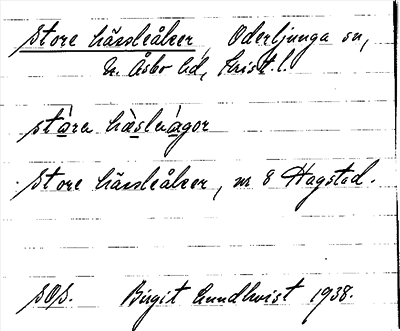 Store hässleåker, Oderljunga sn,
N. Åsbo hd, Krist. l.
stárn hàslnágor
Store hässleåker, nr 8 Hagstad.
SOS. Birgit Lundkvist 1938.